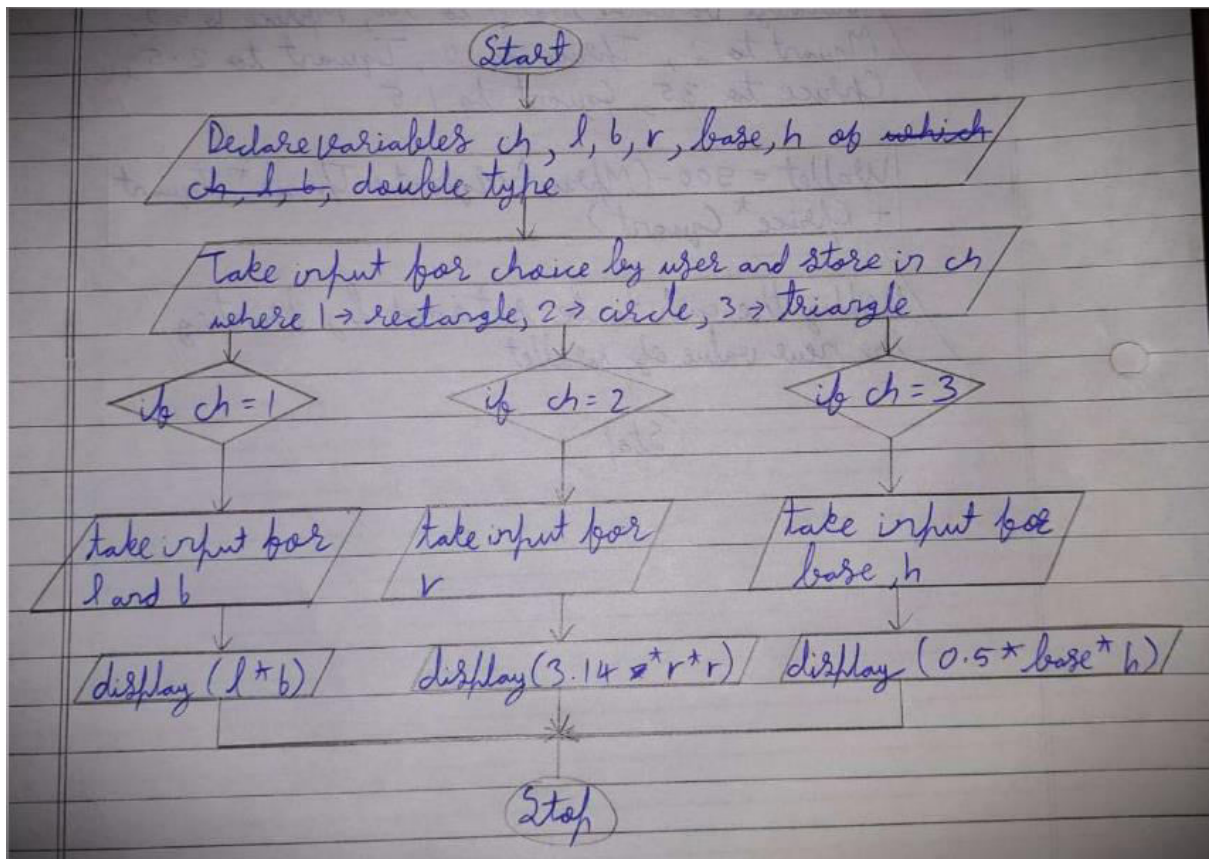 Start
Declare variables ch, l, b, r, base, h of which
ch, l, b, double type
Take input for choice by user and store in ch
where 1 → rectangle, 2 → circle, 3 → triangle
if ch = 1
if ch = 2
if ch = 3
take input for
l and b
take input for
r
take input for
base, h
display (l * b)
display (3.14 * r * r)
display (0.5 * base * h)
Stop